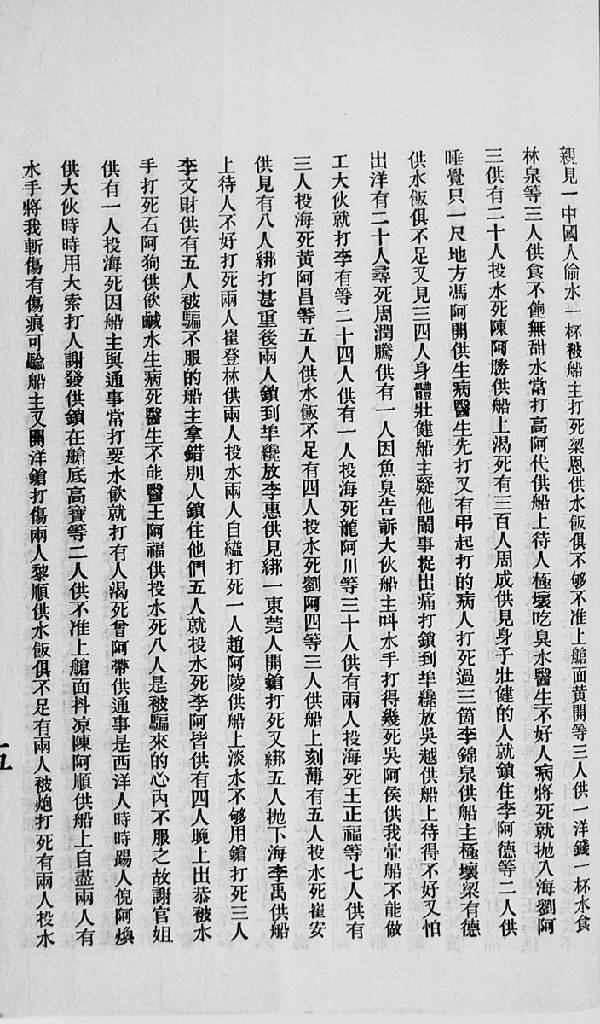 親見一中國人偷水一杯被船主打死梁恩供水飯俱不够不准上艙面黃開等三人供一洋錢一杯水食
林泉等三人供食不飽無甜水當打高阿代供船上待人極壞吃臭水醫生不好人病將死就拋入海劉阿
三供有二十人投水死陳阿勝供船上渴死有三百人周成供見身子壯健的人就鎖住李阿德等二人供
睡覺只一尺地方馮阿開供生病醫生先打又有弔起打的病人打死過三箇李錦泉供船主極壞梁有德
供水飯俱不足又見三四人身體壯健船主疑他鬧事捉出痛打鎖到埠纔放吳越供船上待得不好又怕
出洋有二十人尋死周潤騰供有一人因魚臭告訴大伙船主叫水手打得幾死吳阿侯供我暈船不能做
工大伙就打李有等二十四人供有一人投海死龍阿川等三十人供有兩人投海死王正福等七人供有
三人投海死黃阿昌等五人供水飯不足有四人投水死劉阿四等三人供船上刻薄有五人投水死崔安
供見有八人綁打甚重後兩人鎖到埠纔放李惠供見綁一東莞人開鎗打死又綁五人拋下海李禹供船
上待人不好打死兩人崔登林供兩人投水兩人自縊打死一人趙阿陵供船上淡水不够用鎗打死三人
李文財供有五人被騙不服的船主拿錯別人鎖住他們五人就投水死李阿皆供有四人晚上出恭被水
手打死石阿狗供飲鹹水生病死醫生不能醫王阿福供投水死八人是被騙來的心內不服之故謝官姐
供有一人投海死因船主與通事當打要水飲就打有人渴死曾阿帶供通事是西洋人時時踢人倪阿煥
供大伙時時用大索打人謝發供鎖在艙底高寶等二人供不准上艙面抖凉陳阿順供船上自盡兩人有
水手將我斬傷有傷痕可驗船主又開洋鎗打傷兩人黎順供水飯俱不足有兩人被炮打死有兩人投水
五